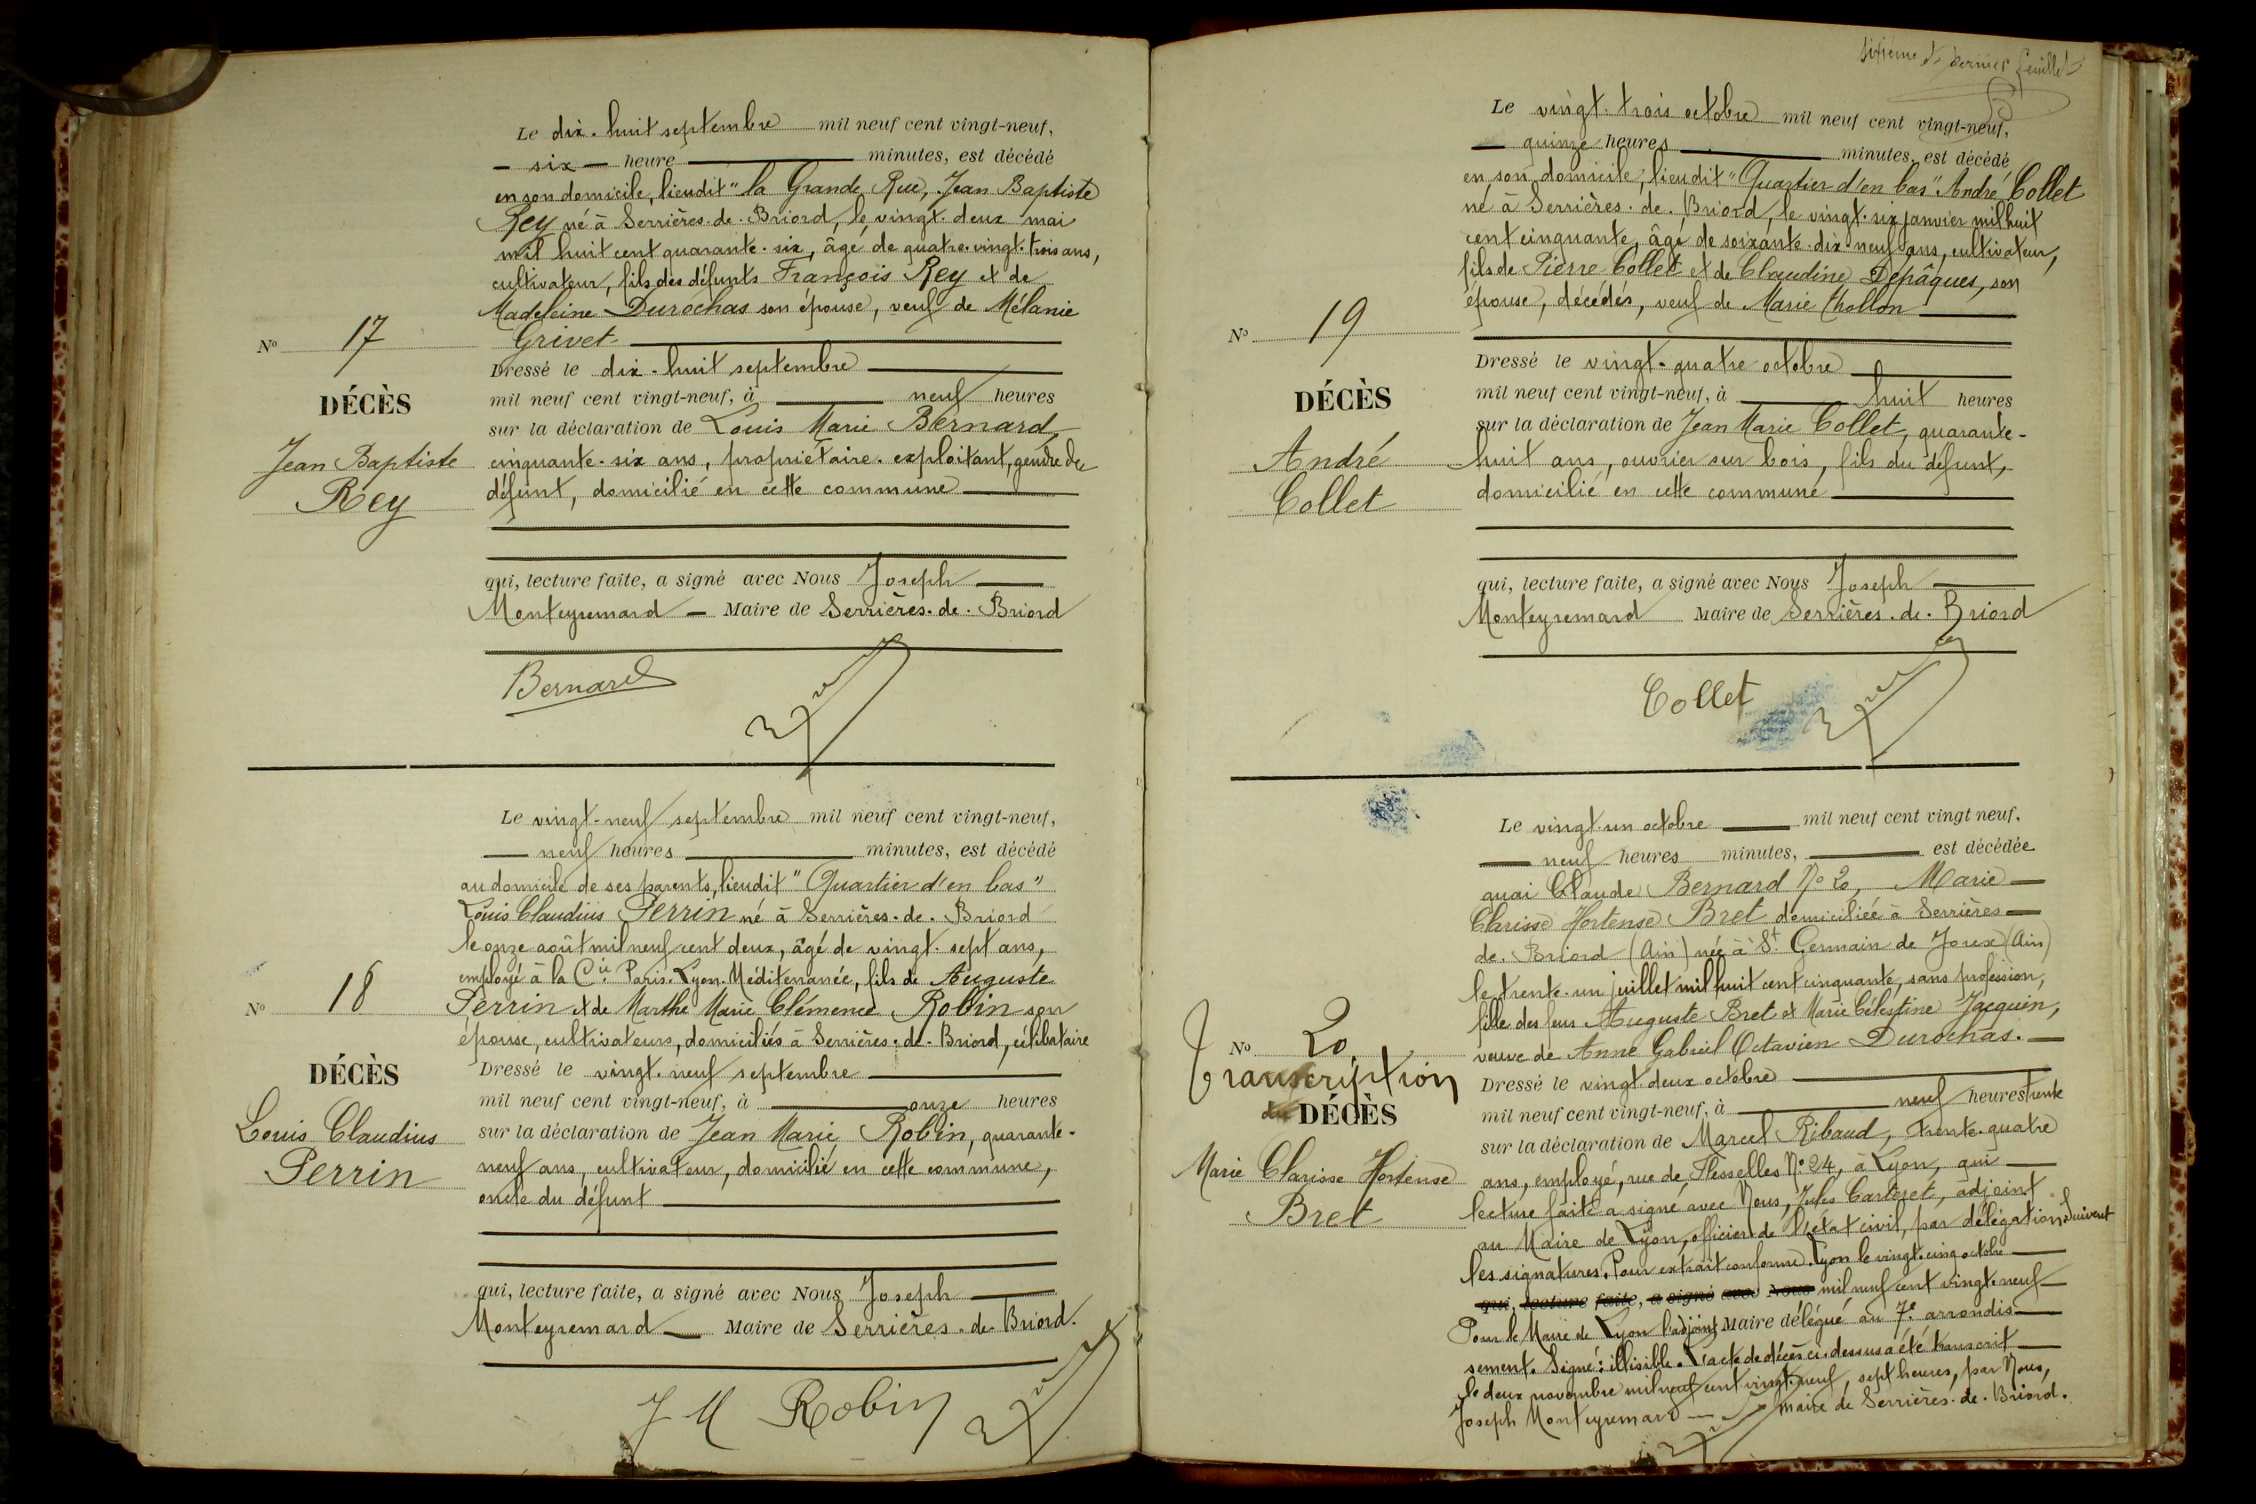 Le dix-huit septembre mil neuf cent vingt-neuf,
— six — heure — minutes, est décédé
en son domicile, lieudit "la Grande Rue, Jean Baptiste
Rey né à Serrières-de-Briord, le vingt-deux mai
mil huit cent quarante-six, âgé de quatre-vingt-trois ans,
cultivateur, fils des défunts François Rey et de
Madeleine Durochas son épouse, veuf de Mélanie
Grivet
N° 17
DÉCÈS
Jean Baptiste
Rey
Dressé le dix-huit septembre
mil neuf cent vingt-neuf, à neuf heures
sur la déclaration de Louis Marie Bernard,
cinquante-six ans, propriétaire-exploitant, gendre du
défunt, domicilié en cette commune
qui, lecture faite, a signé avec Nous Joseph
Monteyremard — Maire de Serrières-de-Briord
Bernard
Le vingt-neuf septembre mil neuf cent vingt-neuf,
— neuf heures — minutes, est décédé
au domicile de ses parents, lieudit "Quartier d'en bas"
Louis Claudius Perrin né à Serrières-de-Briord
le onze août mil neuf cent deux, âgé de vingt-sept ans,
employé à la Cie Paris-Lyon-Méditerranée, fils de Auguste
Perrin et de Marthe Marie Clémence Robin son
épouse, cultivateurs, domiciliés à Serrières-de-Briord, célibataire
N° 18
DÉCÈS
Louis Claudius
Perrin
Dressé le vingt-neuf septembre
mil neuf cent vingt-neuf, à onze heures
sur la déclaration de Jean Marie Robin, quarante-
neuf ans, cultivateur, domicilié en cette commune,
oncle du défunt
qui, lecture faite, a signé avec Nous Joseph
Monteyremard — Maire de Serrières-de-Briord.
J M Robin
sixième et dernier feuillet
Le vingt-trois octobre mil neuf cent vingt-neuf,
— quinze heures — minutes, est décédé
en son domicile, lieudit "Quartier d'en bas" André Collet
né à Serrières-de-Briord, le vingt-six janvier mil huit
cent cinquante, âgé de soixante-dix-neuf ans, cultivateur,
fils de Pierre Collet et de Claudine Depâques, son
épouse, décédés, veuf de Marie Chollon
N° 19
DÉCÈS
André
Collet
Dressé le vingt-quatre octobre
mil neuf cent vingt-neuf, à huit heures
sur la déclaration de Jean Marie Collet, quarante-
huit ans, ouvrier sur bois, fils du défunt,
domicilié en cette commune
qui, lecture faite, a signé avec Nous Joseph
Monteyremard Maire de Serrières-de-Briord
Collet
Le vingt-un octobre — mil neuf cent vingt neuf,
— neuf heures minutes, — est décédée
quai Claude Bernard N° 20, Marie —
Clarisse Hortense Bret domiciliée à Serrières —
de-Briord (Ain) née à St Germain de Joux (Ain)
le trente-un juillet mil huit cent cinquante, sans profession,
fille des feus Auguste Bret et Marie Célestine Jacquin,
veuve de Anne Gabriel Octavien Durochas. —
N° 20
Transcription
du DÉCÈS
Marie Clarisse Hortense
Bret
Dressé le vingt-deux octobre
mil neuf cent vingt-neuf, à neuf heures trente
sur la déclaration de Marcel Ribaud, trente-quatre
ans, employé, rue de Flesselles N° 24, à Lyon, qui —
lecture faite a signé avec Nous, Jules Carteret, adjoint
au Maire de Lyon, officier de l'état civil, par délégation. Suivent
les signatures. Pour extrait conforme. Lyon le vingt-cinq octobre
qui, lecture faite, a signé avec Nous mil neuf cent vingt-neuf —
Pour le Maire de Lyon l'adjoint Maire délégué au 7e arrondis-
sement. Signé: illisible. L'acte de décès ci-dessus a été transcrit
le deux novembre mil neuf cent vingt-neuf, sept heures, par Nous,
Joseph Monteyremard — maire de Serrières-de-Briord.